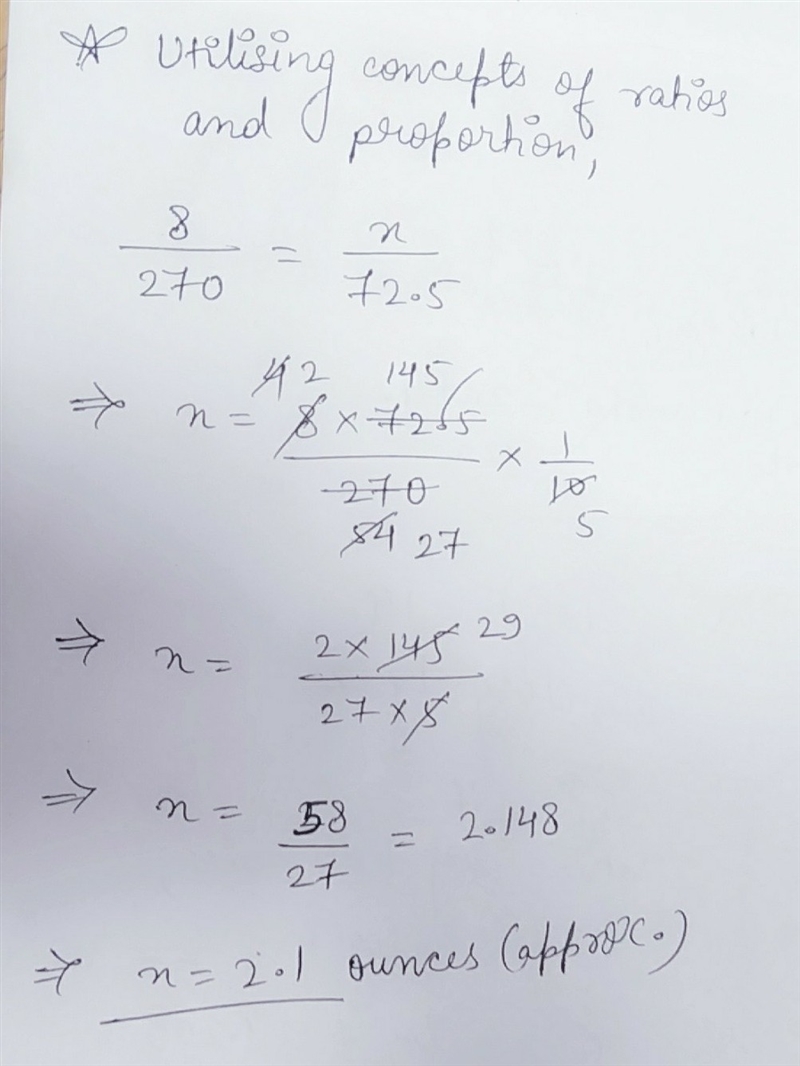 ☆ Utilising concepts of ratios
and proportion,
8/270 = n/72.5
⇒ n = 4 2 145
8 × 72.5/270 × 1/10
54 27 5
⇒ n = 2 × 145 29/27 × 5
⇒ n = 58/27 = 2.148
⇒ n = 2.1 ounces (approx.)